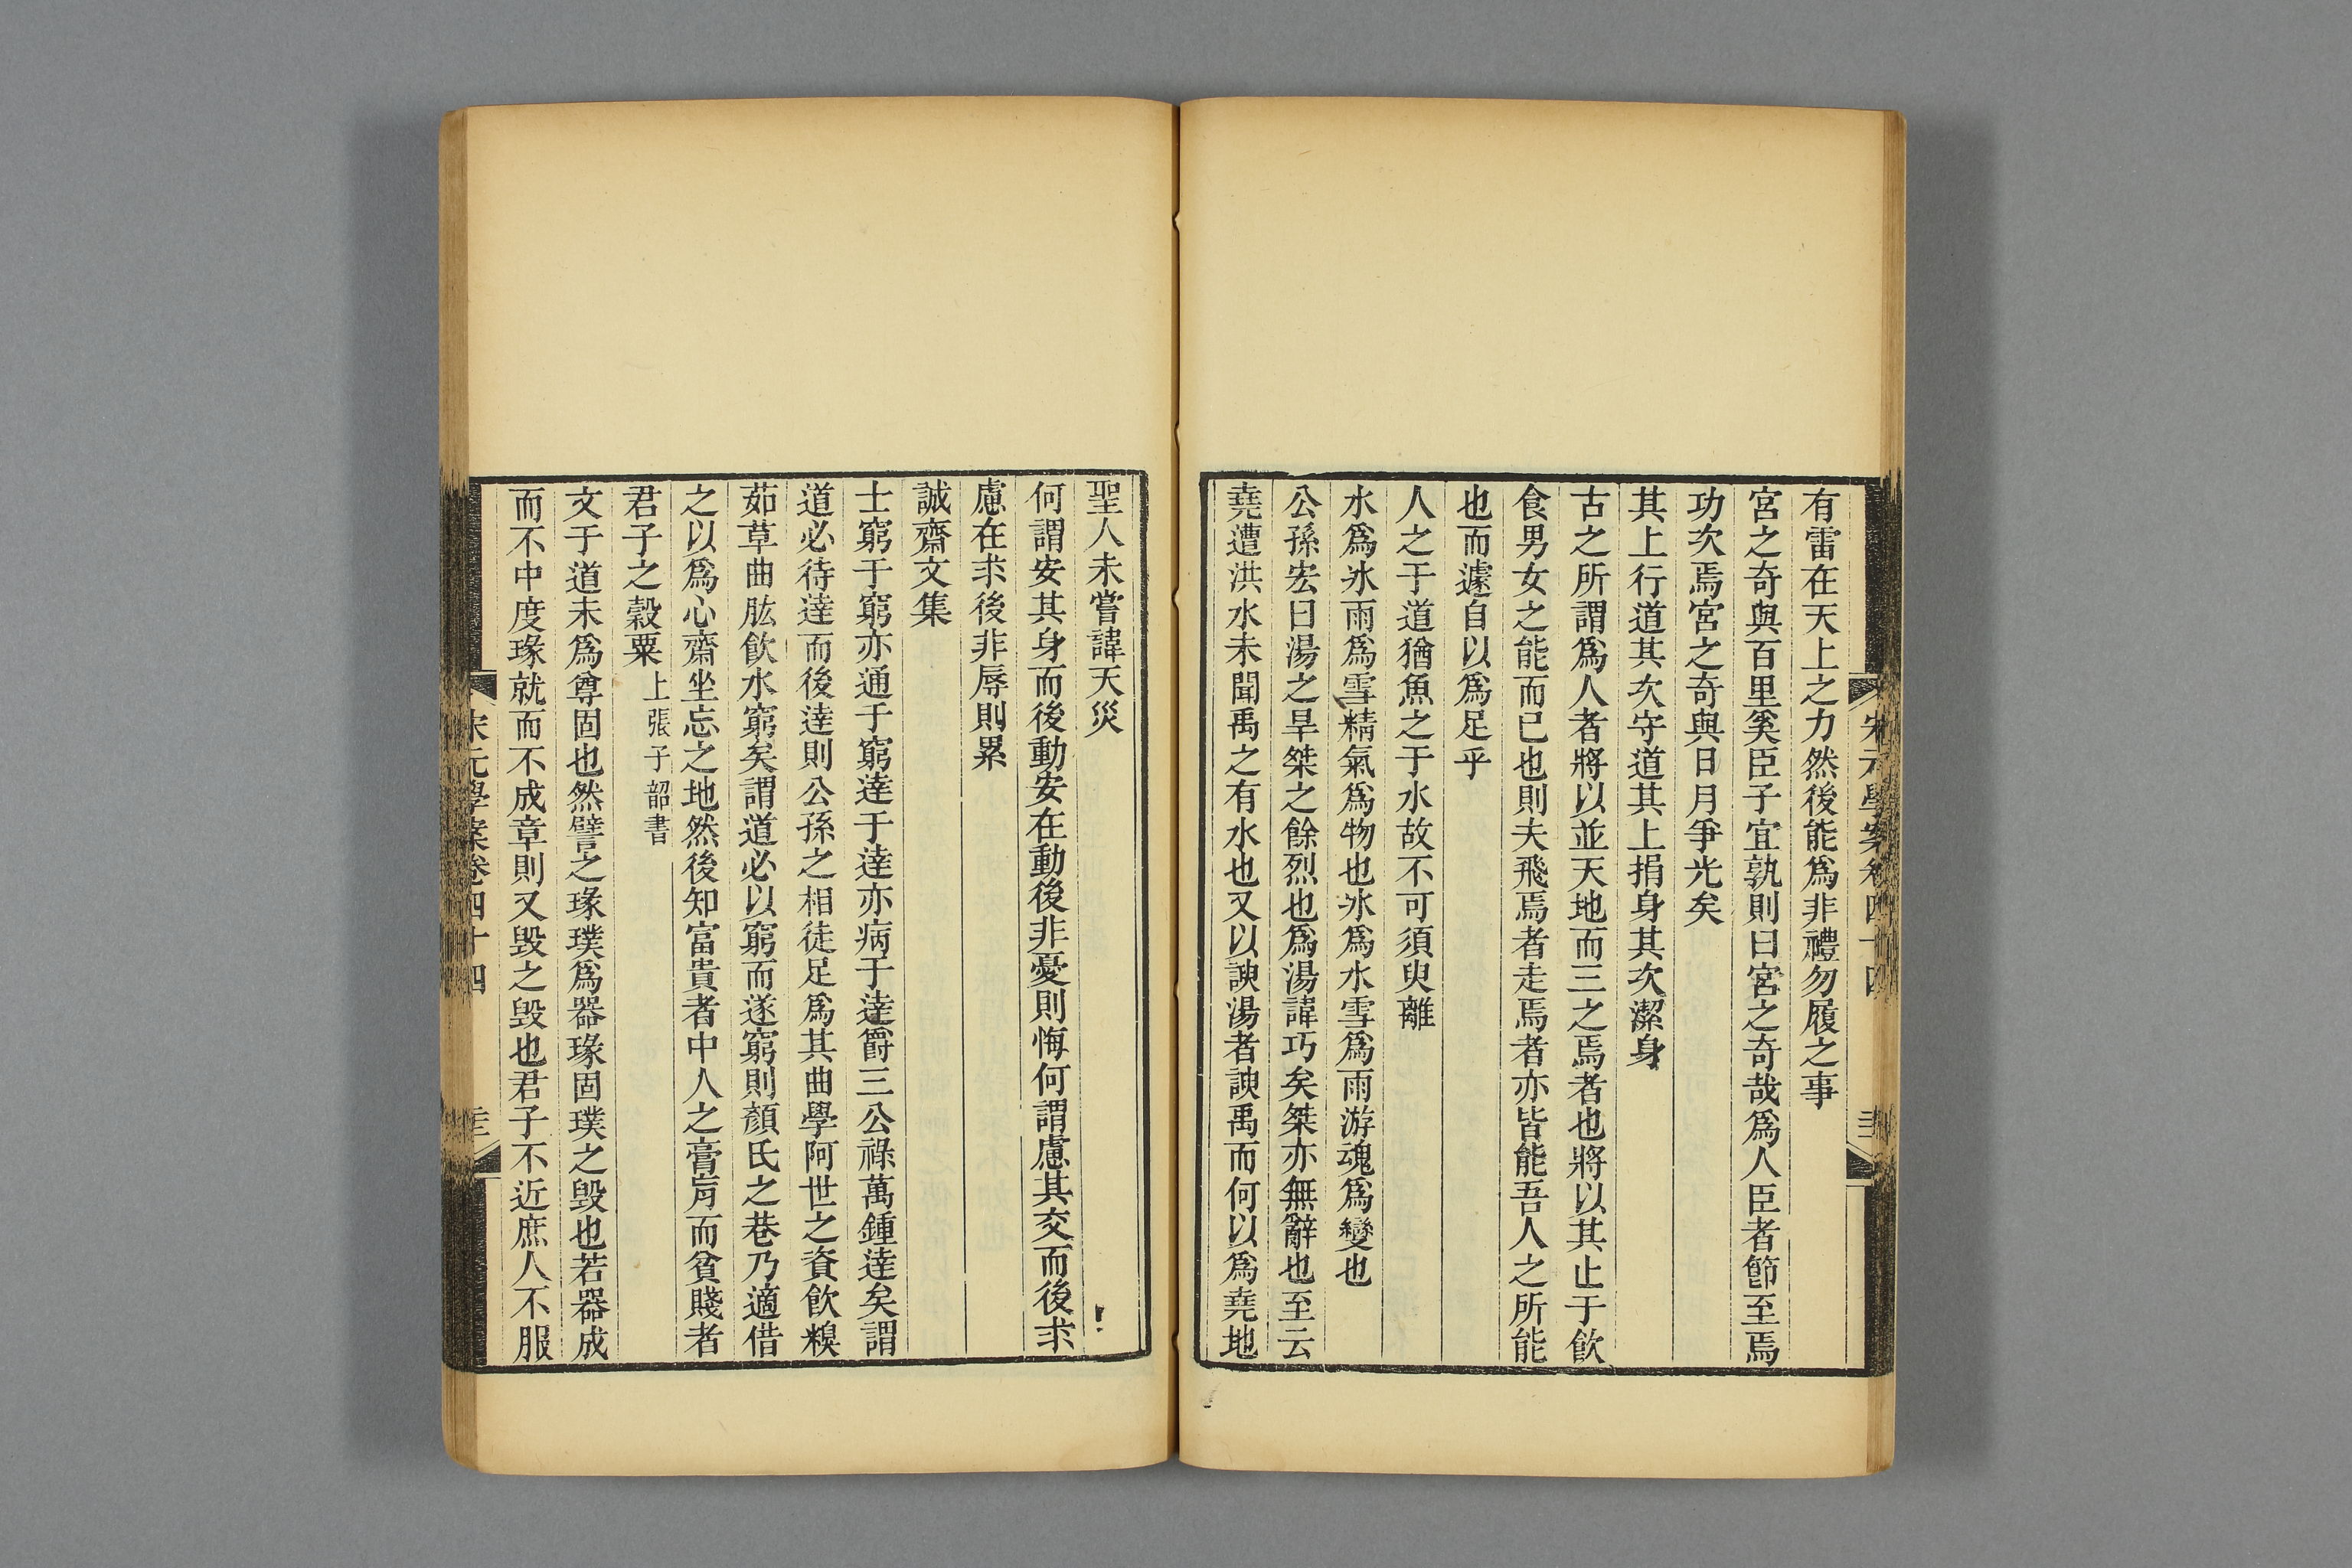 宋元學案卷四十四
有雷在天上之力然後能爲非禮勿履之事
宮之奇與百里奚臣子宜孰則曰宮之奇哉爲人臣者節至焉
功次焉宮之奇與日月爭光矣
其上行道其次守道其上捐身其次潔身
古之所謂爲人者將以並天地而三之焉者也將以其止于飮
食男女之能而已也則夫飛焉者走焉者亦皆能吾人之所能
也而遽自以爲足乎
人之于道猶魚之于水故不可須臾離
水爲冰雨爲雪精氣爲物也冰爲水雪爲雨游魂爲變也
公孫宏曰湯之旱桀之餘烈也爲湯諱巧矣桀亦無辭也至云
堯遭洪水未聞禹之有水也又以諛湯者諛禹而何以爲堯地
聖人未嘗諱天災
何謂安其身而後動安在動後非憂則悔何謂慮其交而後求
慮在求後非辱則累
誠齋文集
士窮于窮亦通于窮達于達亦病于達爵三公祿萬鍾達矣謂
道必待達而後達則公孫之相徒足爲其曲學阿世之資飮糗
茹草曲肱飮水窮矣謂道必以窮而遂窮則顏氏之巷乃適借
之以爲心齋坐忘之地然後知富貴者中人之膏肓而貧賤者
君子之穀粟上張子韶書
文于道未爲尊固也然譬之瑑璞爲器瑑固璞之毁也若器成
而不中度瑑就而不成章則又毁之毁也君子不近庶人不服
宋元學案卷四十四